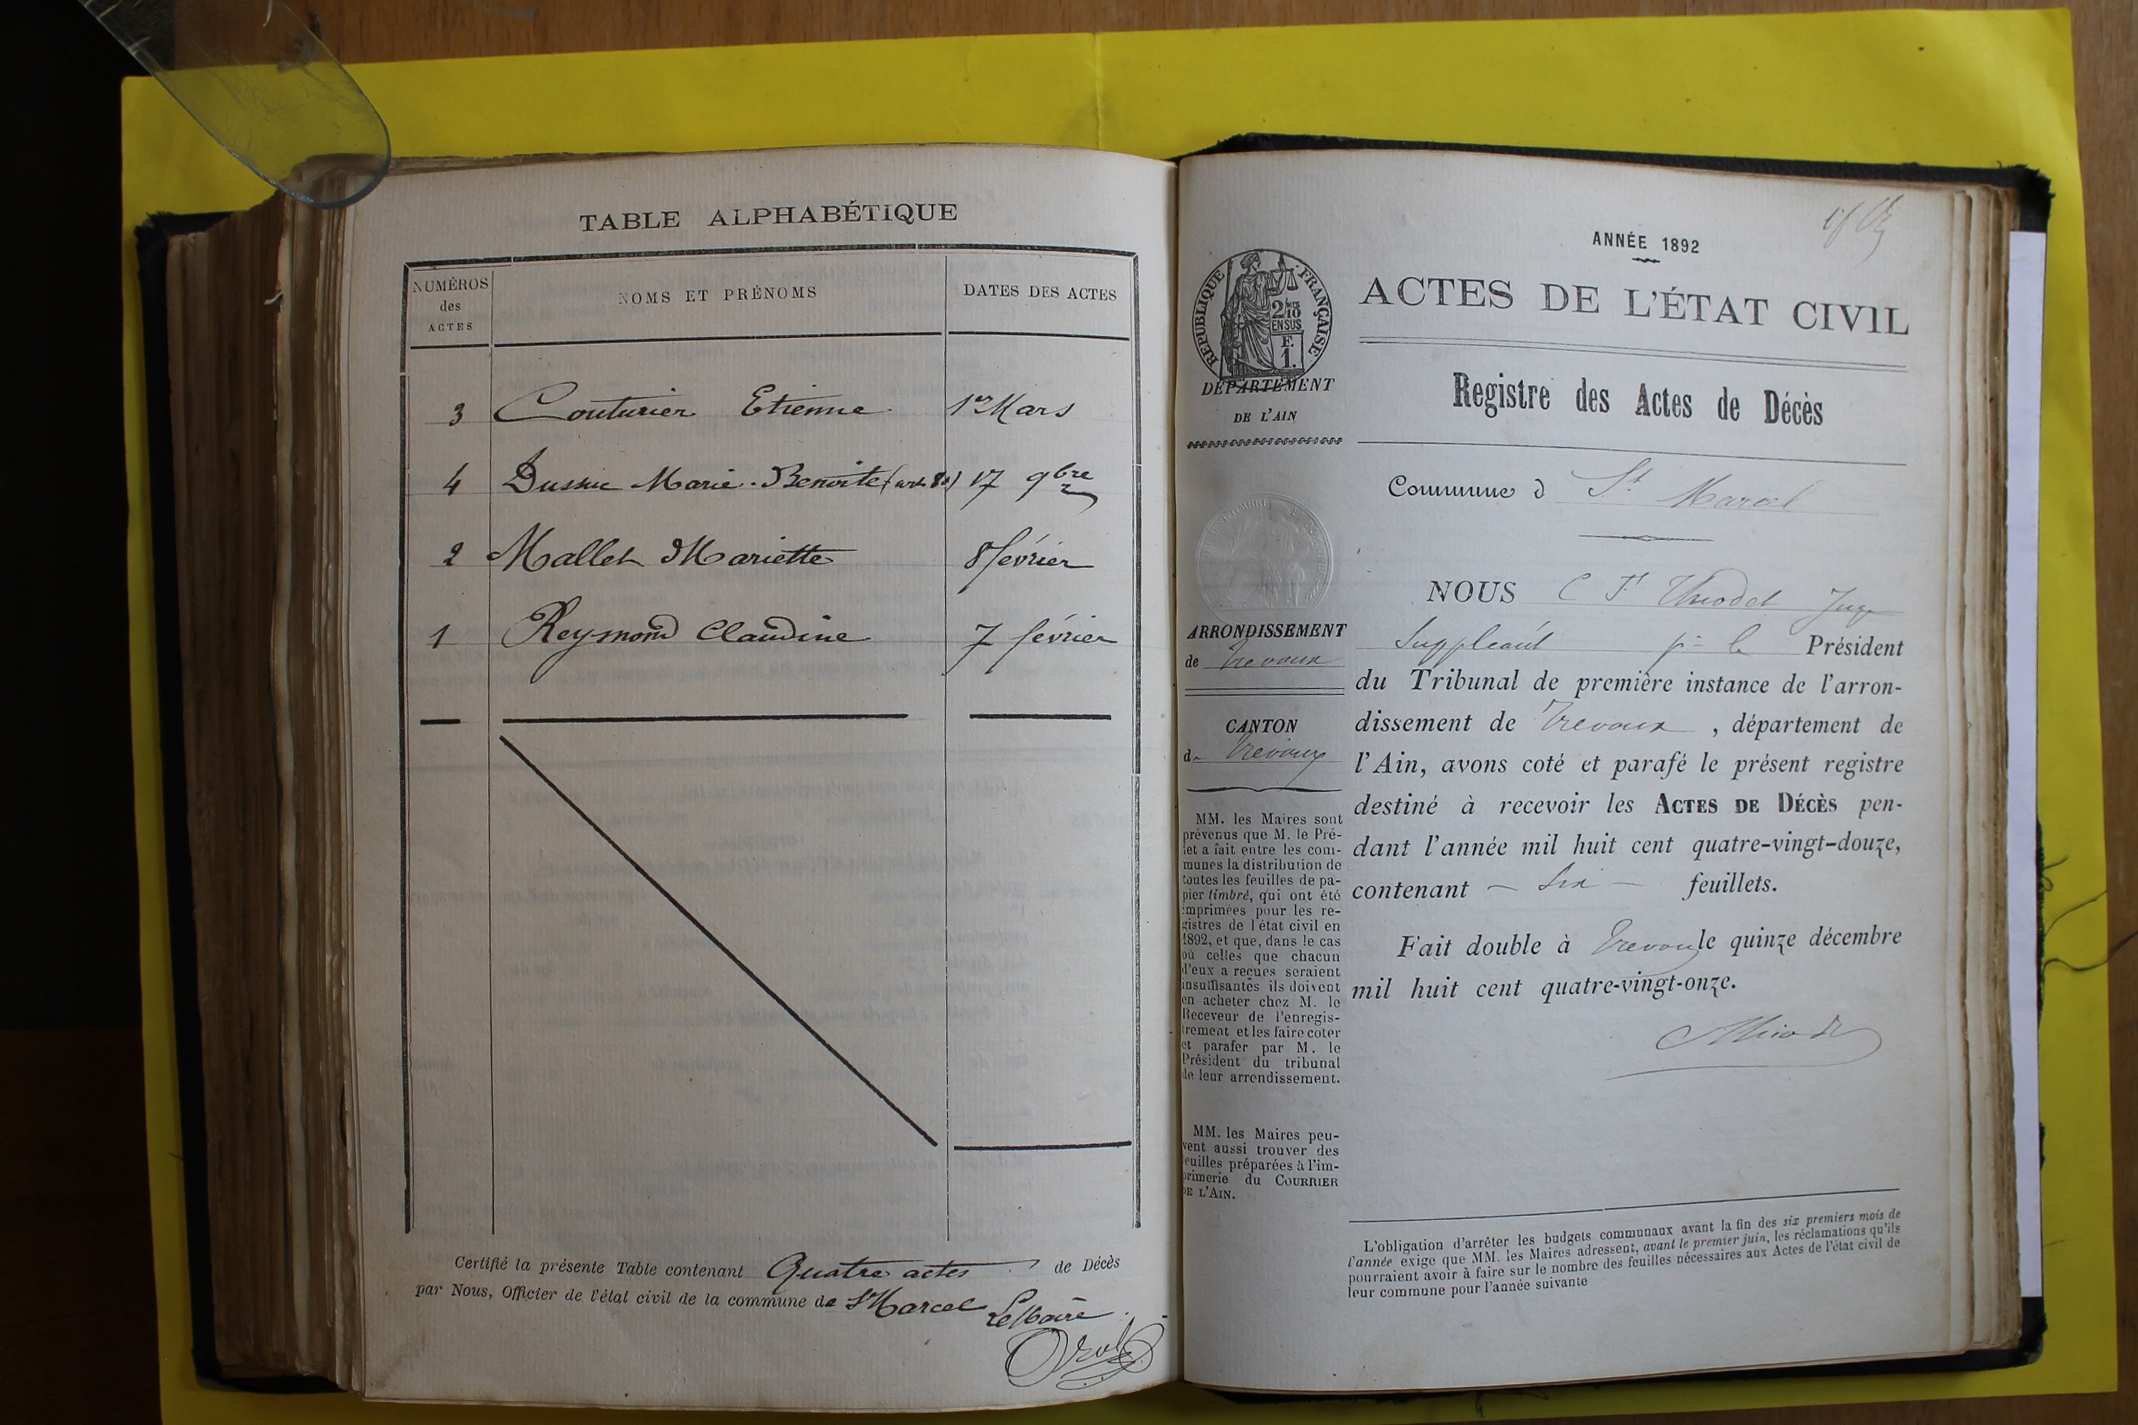 TABLE ALPHABÉTIQUE
NUMÉROS
des
ACTES
NOMS ET PRÉNOMS
DATES DES ACTES
3 Couturier Etienne 1er Mars
4 Marie-Benoite 17 9bre
2 Mallet Mariette 8 février
1 Reymond Claudine 7 février
Certifié la présente Table contenant Quatre actes de Décès
par Nous, Officier de l'état civil de la commune de St Marcel
Le Maire
ANNÉE 1892
ACTES DE L'ÉTAT CIVIL
Registre des Actes de Décès
RÉPUBLIQUE FRANÇAISE
2/10
EN SUS
F.
1.
DÉPARTEMENT
DE L'AIN
ARRONDISSEMENT
de Trevoux
CANTON
de Trevoux
MM. les Maires sont
prévenus que M. le Pré-
fet a fait entre les com-
munes la distribution de
toutes les feuilles de pa-
pier timbré, qui ont été
imprimées pour les re-
gistres de l'état civil en
1892, et que, dans le cas
où celles que chacun
d'eux a reçues seraient
insuffisantes ils doivent
en acheter chez M. le
Receveur de l'enregis-
trement et les faire coter
et parafer par M. le
Président du tribunal
de leur arrondissement.
MM. les Maires peu-
vent aussi trouver des
feuilles préparées à l'im-
primerie du COURRIER
DE L'AIN.
Commune d St Marcel
NOUS Juge
Suppléant pr le Président
du Tribunal de première instance de l'arron-
dissement de Trevoux , département de
l'Ain, avons coté et parafé le présent registre
destiné à recevoir les ACTES DE DÉCÈS pen-
dant l'année mil huit cent quatre-vingt-douze,
contenant - Six - feuillets.
Fait double à Trevoux le quinze décembre
mil huit cent quatre-vingt-onze.
L'obligation d'arrêter les budgets communaux avant la fin des six premiers mois de
l'année exige que MM. les Maires adressent, avant le premier juin, les réclamations qu'ils
pourraient avoir à faire sur le nombre des feuilles nécessaires aux Actes de l'état civil de
leur commune pour l'année suivante